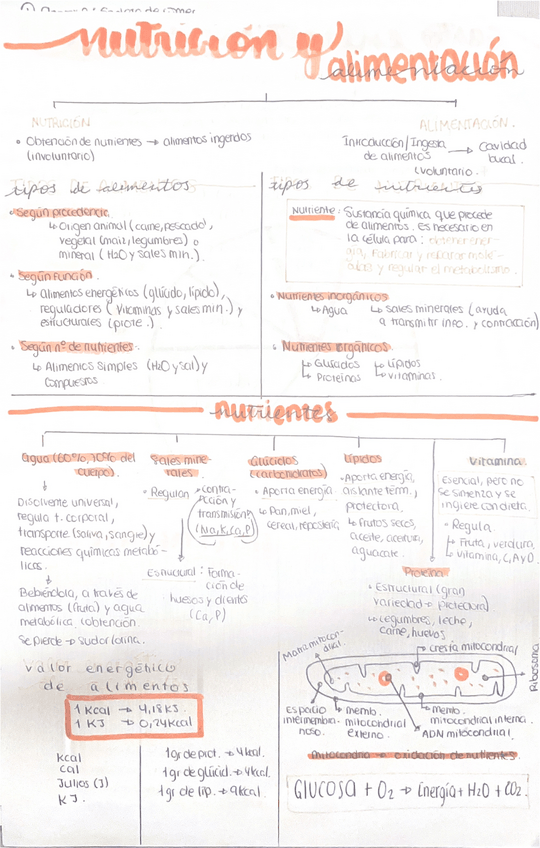 nutrición y
alimentación
NUTRICIÓN
Obtención de nutrientes → alimentos ingeridos
(involuntario)
ALIMENTACIÓN.
Introducción/Ingesta
de alimentos → Cavidad
bucal.
(voluntario.
tipos de alimentos
Según procedencia
↳ Origen animal (carne, pescado),
vegetal (maiz, legumbres) o
mineral (H2O y sales min.).
Según función.
↳ Alimentos energéticos (glúcido, lípido),
reguladores (vitaminas y sales min.) y
estructurales (prote.).
Según nº de nutrientes.
↳ Alimentos Simples (H2O y sal) y
Compuestos
tipos de nutrientes
Nutriente: Sustancia química que procede
de alimentos. es necesario en
la célula para: obtener ener-
gía, fabricar y reparar molé-
culas y regular el metabolismo.
Nutrientes inorgánicos
↳ Agua ↳ Sales minerales (ayuda
a transmitir info. y contracción)
Nutrientes orgánicos
↳ Glúcidos ↳ Lípidos
↳ Proteínas ↳ vitaminas.
nutrientes
Agua (60%, 70% del
cuerpo).
Disolvente universal,
regula t. corporal,
transporte (saliva, sangre) y
reacciones químicas metabó-
licas.
Bebiéndola, a través de
alimentos (fruta) y agua
metabólica. (obtención.
Se pierde → sudor/orina.
Sales mine-
rales.
Regulan → contra-
cción y
transmisión
(Na, K, Ca, P)
Estructural: Forma-
ción de
huesos y dientes
(Ca, P)
Glúcidos
(carbohidratos)
Aporta energía
↳ Pan, miel,
cereal, repostería
Lípidos
Aporta energía,
aislante térm.,
protectora.
↳ Frutos secos,
aceite, aceituna,
aguacate.
Proteína
Estructural (gran
variedad → protectora)
↳ Legumbres, leche,
carne, huevos
Vitamina
Esencial, pero no
se sintetiza y se
ingiere con dieta.
Regula
↳ Fruta, verdura
↳ Vitamina, C, A y D.
valor energético
de alimentos
1 Kcal → 4,18 KJ
1 KJ → 0,24 kcal
Kcal
cal
Julios (J)
KJ.
1gr de prot. → 4 kcal.
1gr de glúcid. → 4 kcal.
1gr de lip. → 9 kcal.
Matriz mitocon-
drial.
cresta mitocondrial
Ribosoma
Espacio
intermembra-
noso.
memb.
mitocondrial
externo.
memb.
mitocondrial interna.
ADN mitocondrial.
Mitocondria → oxidación de nutrientes.
GLUCOSA + O2 → Energía + H2O + CO2.